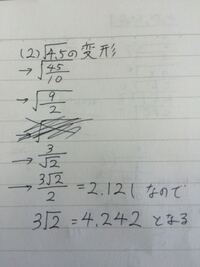 (2)√4.5の変形
→ √45/10
→ √9/2
→ 3/√2
→ 3√2/2 = 2.121 なので
3√2 = 4.242 となる